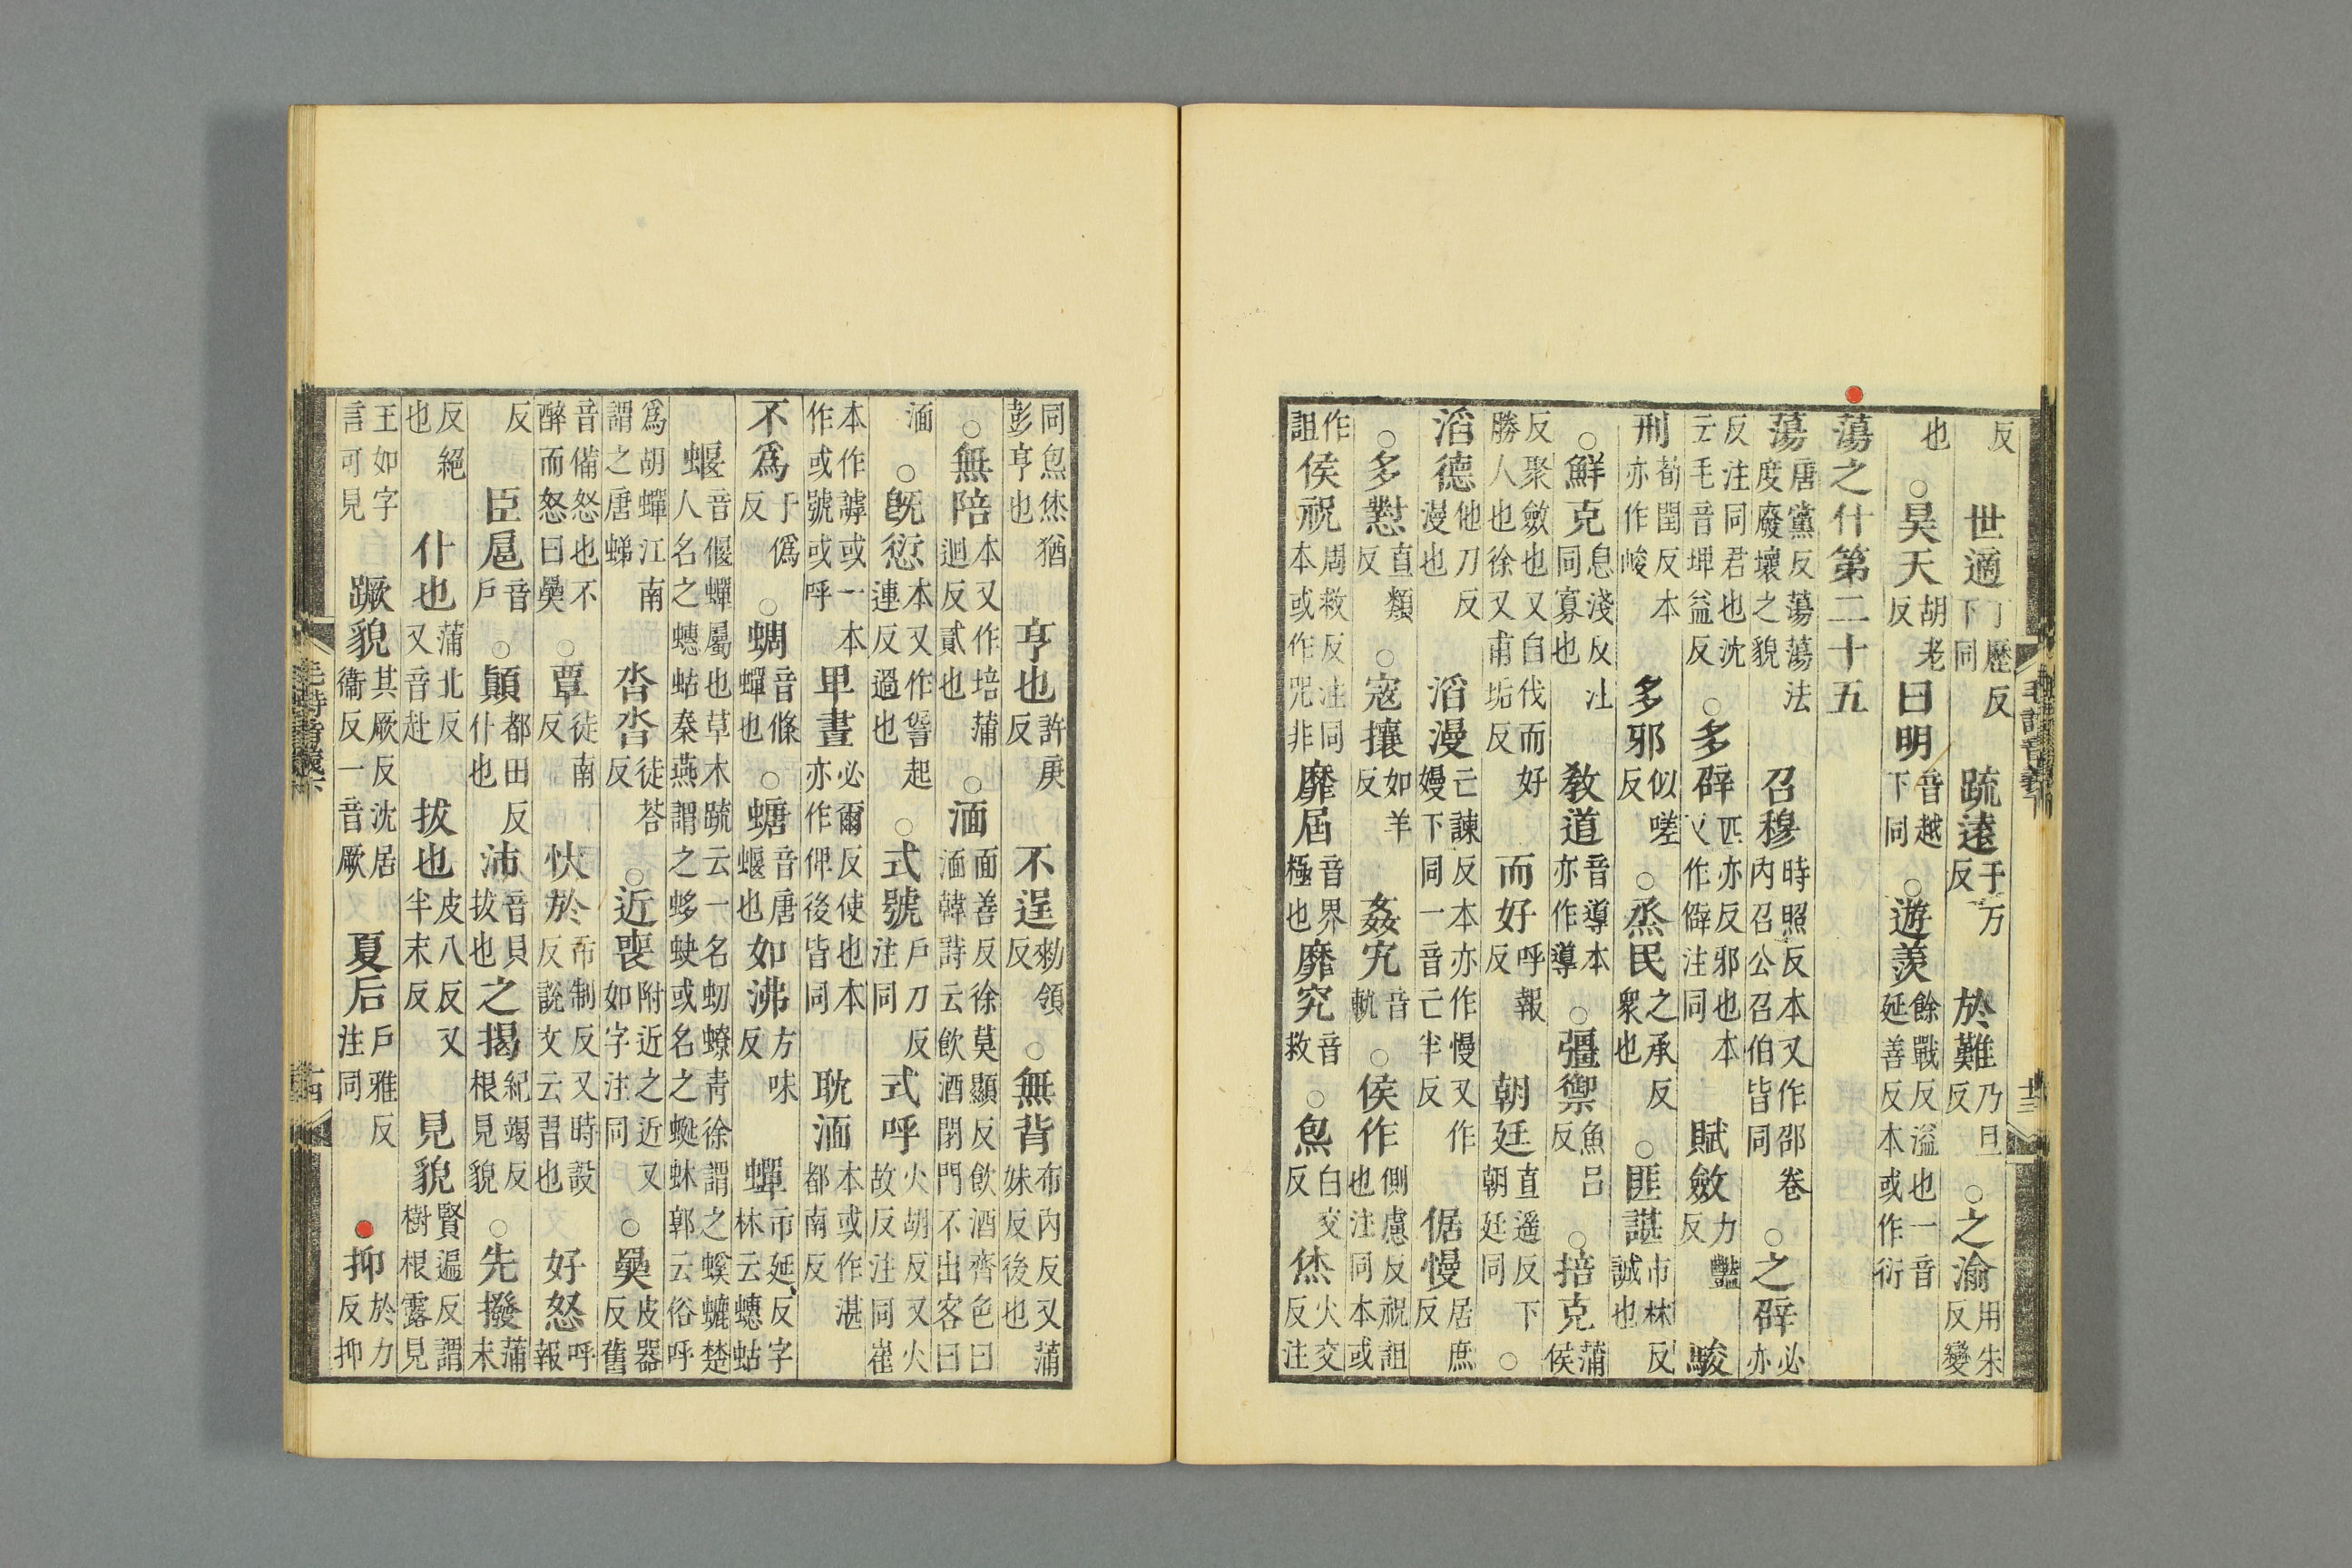 反世適丁歷反下同疏遠于万反於難乃旦反○之渝用朱反變
也○昊天胡老反曰明音越下同○遊羨餘戰反溢也一音延善反本或作衍
蕩之什第二十五
蕩唐黨反蕩蕩法度廢壞之貌召穆時照反本又作邵卷内召公召伯皆同○之辟必亦
反注同君也沈云毛音埤益反○多辟匹亦反邪也本又作僻注同賦斂力豔反駿
刑荀閏反本亦作峻多邪似嗟反○烝民之承反衆也○匪諶市林反誠也
○鮮克息淺反沚同寡也教道音導本亦作導○彊禦魚吕反○掊克蒲侯
反聚斂也又自伐而好勝人也徐又甫垢反而好呼報反朝廷直遥反下朝廷同○
滔德他刀反漫也滔漫亡諫反本亦作慢又作嫚下同一音亡半反倨慢居庶反
○多懟直類反○寇攘如羊反姦宄音軌○侯作側慮反祝詛也注同本或
作詛侯祝周救反注同本或作咒非靡屆音界極也靡究音救○炰白交反烋火交反注
毛詩音義下 十三
同炰烋猶彭亨也亨也許庚反不逞勑領反○無背布内反又蒲妹反後也
○無陪本又作培蒲迴反貳也○湎面善反徐莫顯反飲酒齊色曰湎韓詩云飲酒閉門不出客曰
湎○旣愆本又作諐起連反過也○式號戶刀反注同式呼火胡反又火故反注同崔
本作謼或一本作或號或呼卑晝必爾反使也本亦作俾後皆同耽湎本或作湛都南反
不爲于僞反○蜩音條蟬也○螗音唐蝘也如沸方味反蟬市延反字林云蟪蛄
蝘音偃蟬屬也草木疏云一名虭蟟青徐謂之螇螰楚人名之蟪蛄秦燕謂之蛥蚗或名之蜓蚞郭云俗呼
爲胡蟬江南謂之唐蜣沓沓徒荅反○近喪附近之近又如字注同○奰皮器反舊
音備怒也不醉而怒曰奰○覃徒南反忕於市制反又時設反說文云習也好怒呼報
反臣扈音戶○顛都田反仆也沛音貝拔也之揭紀竭反根見貌○先撥蒲末
反絕也仆也蒲北反又音赴拔也皮八反又半末反見貌賢遍反謂樹根露見
王如字言可見蹶貌其厥反沈居衞反一音厥夏后戶雅反注同抑於力反抑
毛詩音義下 十四